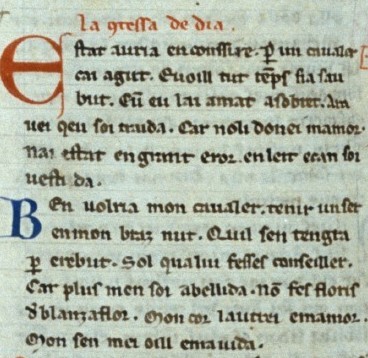 La ꝯtessa de dia.
Estat auria en conssire. ꝑ un caualer
cai agut. Euoill tut tēps sia sau
but. Cū eu lai amat a sobrer. Ara
uei qeu soi traida. Car noli donei mamor.
Nai estat en grant eror. en leit ecan soi
uestida.
Ben uolria mon caualer. tenir unser
en mon braz nut. Qeuil sen tengra
ꝑ erebut. Sol qalui feses conseiller.
Car plus men soi abellida. nō fes floris
de blanzaflor. Mon cor lautrei e mamor.
Mon sen mei oill e ma uida.